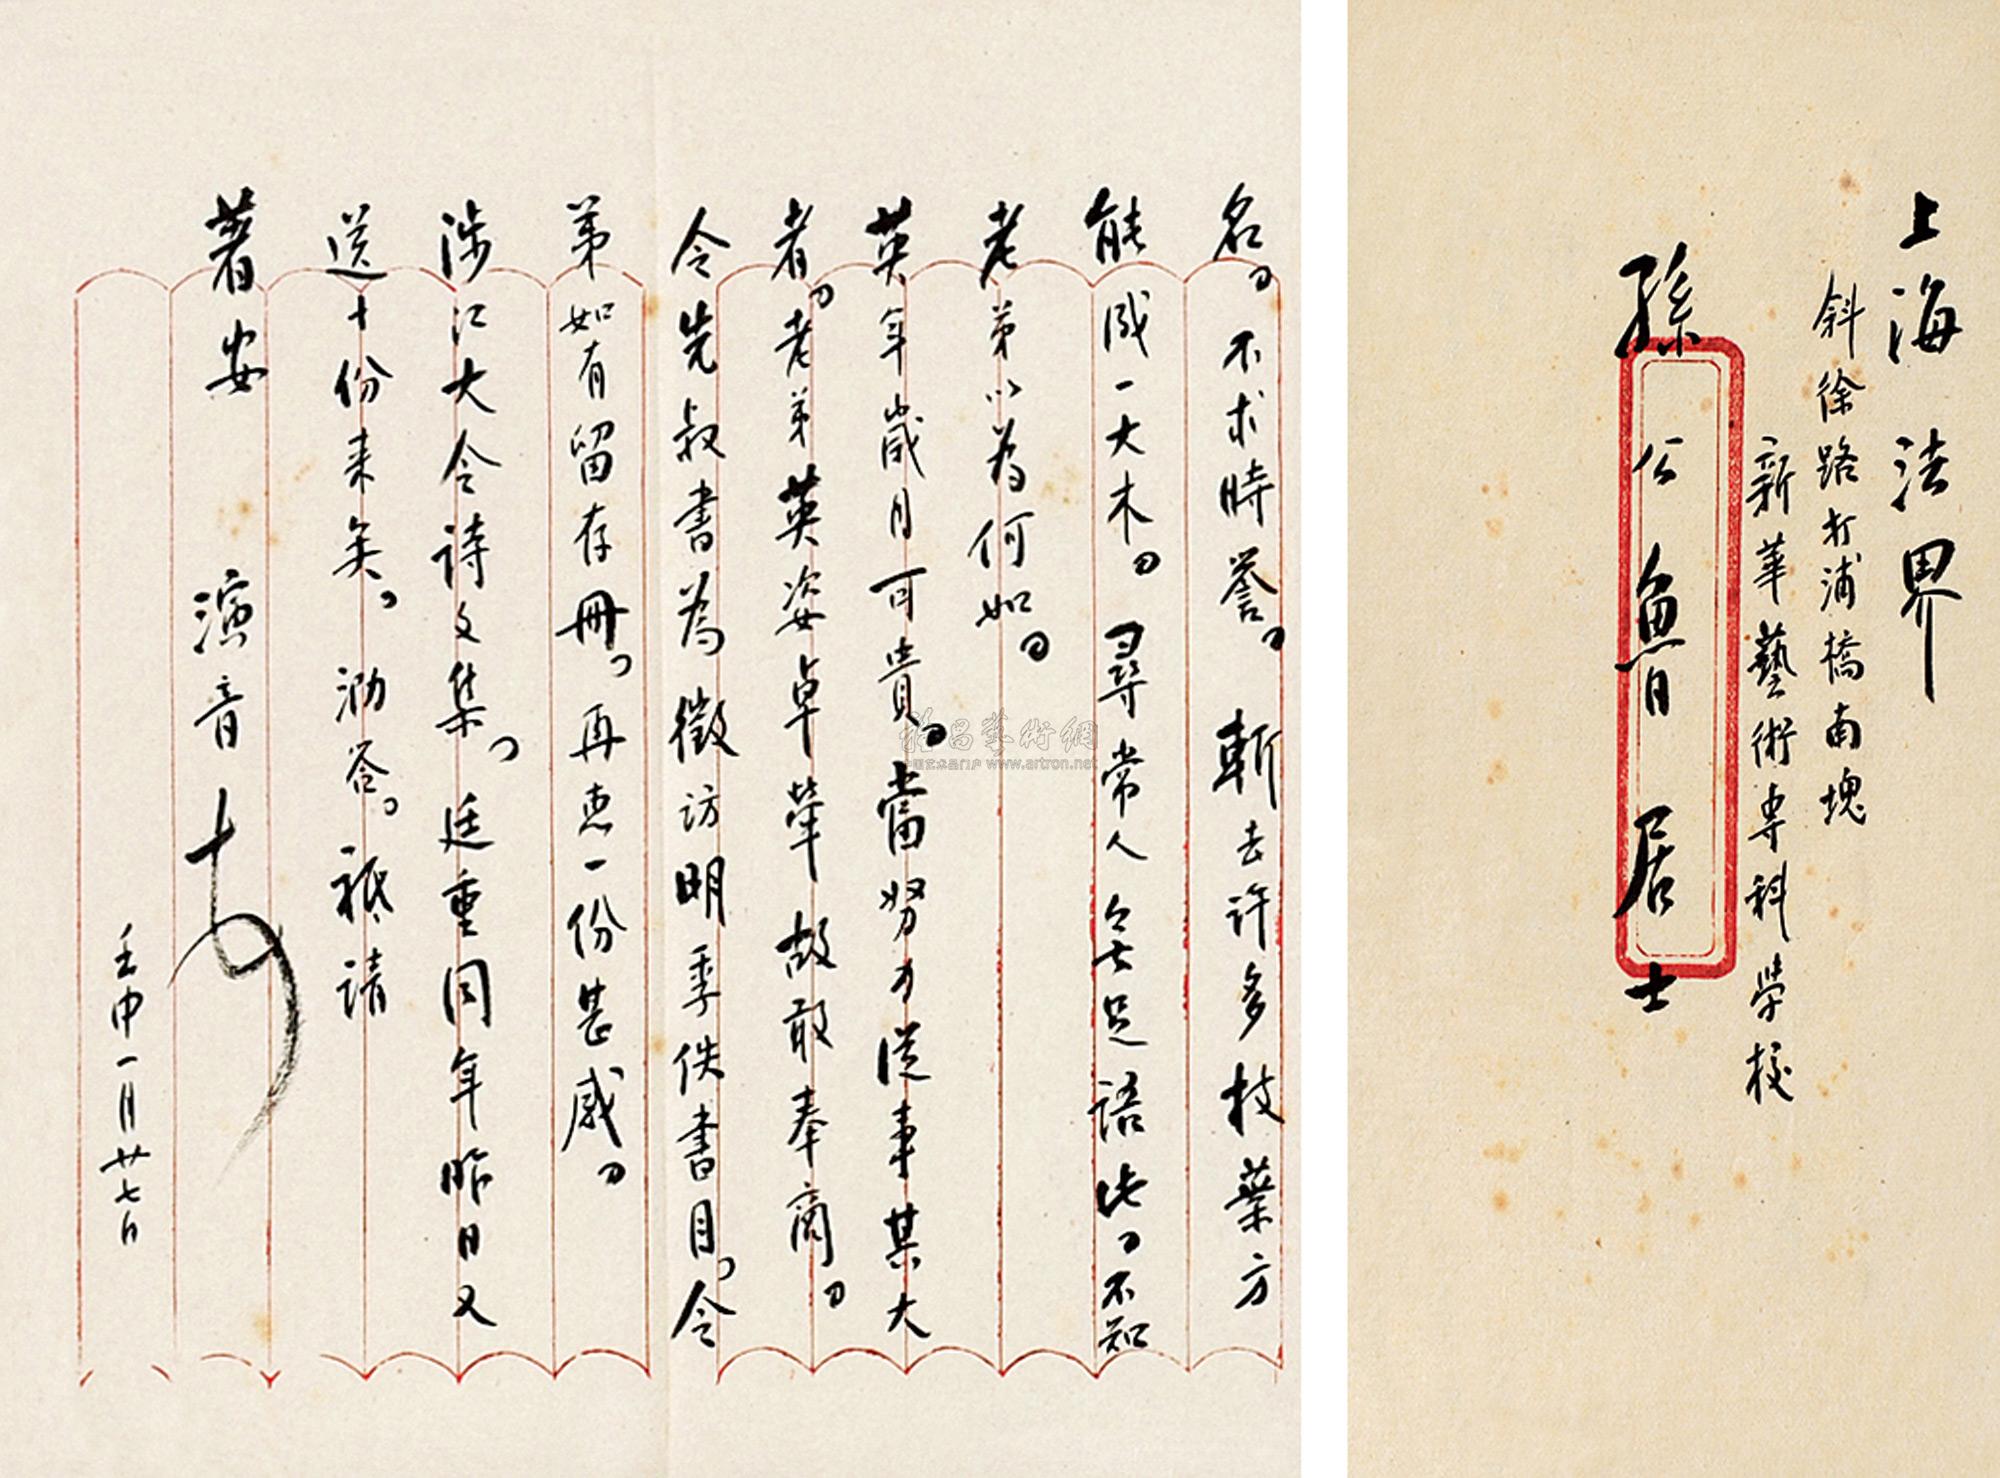 上海法界
斜徐路打浦橋南堍
新華藝術専科學校
孫公魯居士
名。不求時譽。斬去許多枝葉方
能成一大木。尋常人無足語此。不知
老弟以為何如。
英年歲月可貴。當努力從事其大
者。老弟英姿卓犖故敢奉商。
令先叔書為徵訪明季佚書目。令
弟如有留存冊。再惠一份甚感。
涉江大令詩文集。廷重同年昨日又
送十份来矣。泐答。祗請
著安 演音
壬申一月廿七日
中国艺术品门户 www.artron.net